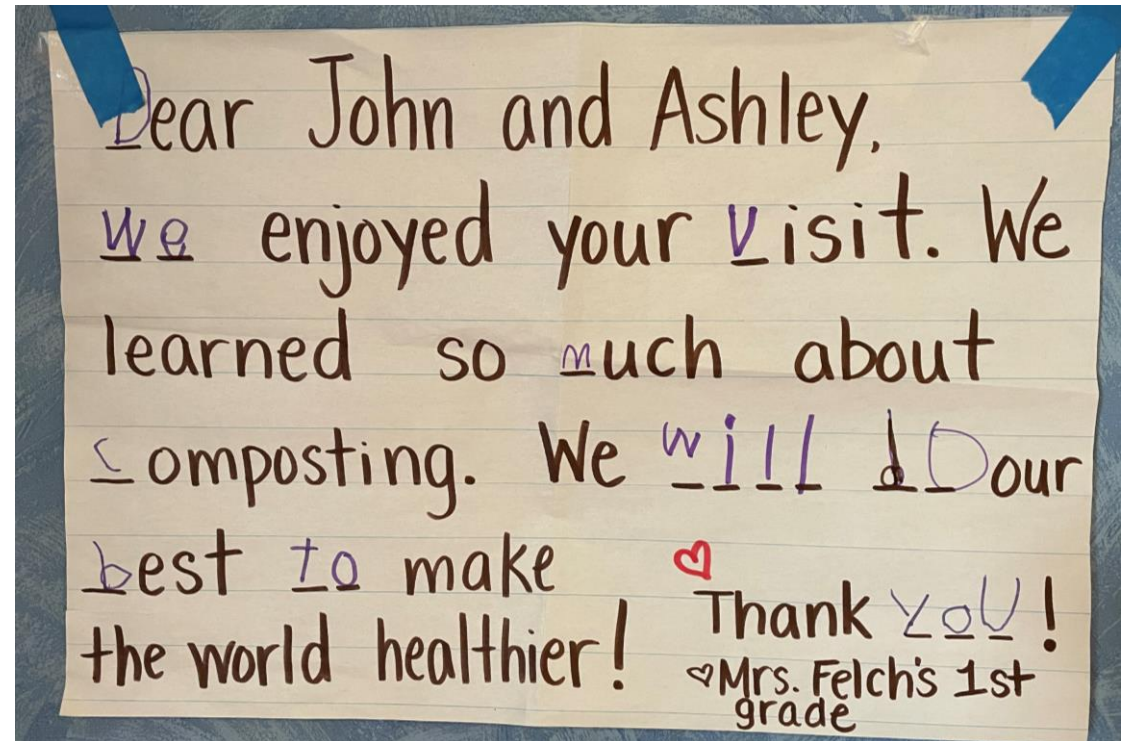 Dear John and Ashley,
We enjoyed your Visit. We
learned so much about
Composting. We will dD our
best to make
the world healthier!
Thank YoU!
Mrs. Felch's 1st
grade